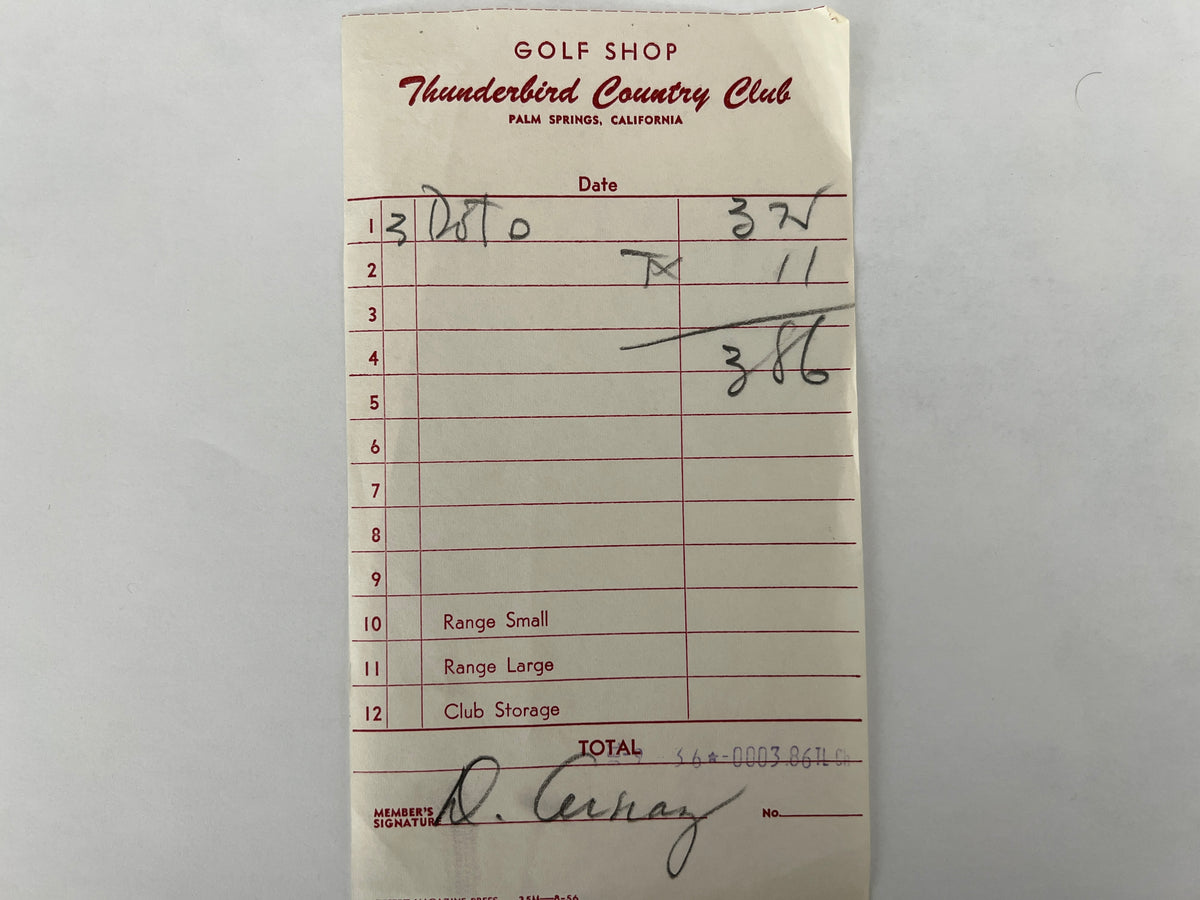 GOLF SHOP
Thunderbird Country Club
PALM SPRINGS, CALIFORNIA
Date
1 3 Dot 0 3 75
2 TX 11
3
4 3 86
5
6
7
8
9
10 Range Small
11 Range Large
12 Club Storage
TOTAL
56*-0003.86TL Ch
MEMBER'S SIGNATURE D. No.
MAGAZINE PRESS 35M—8-56